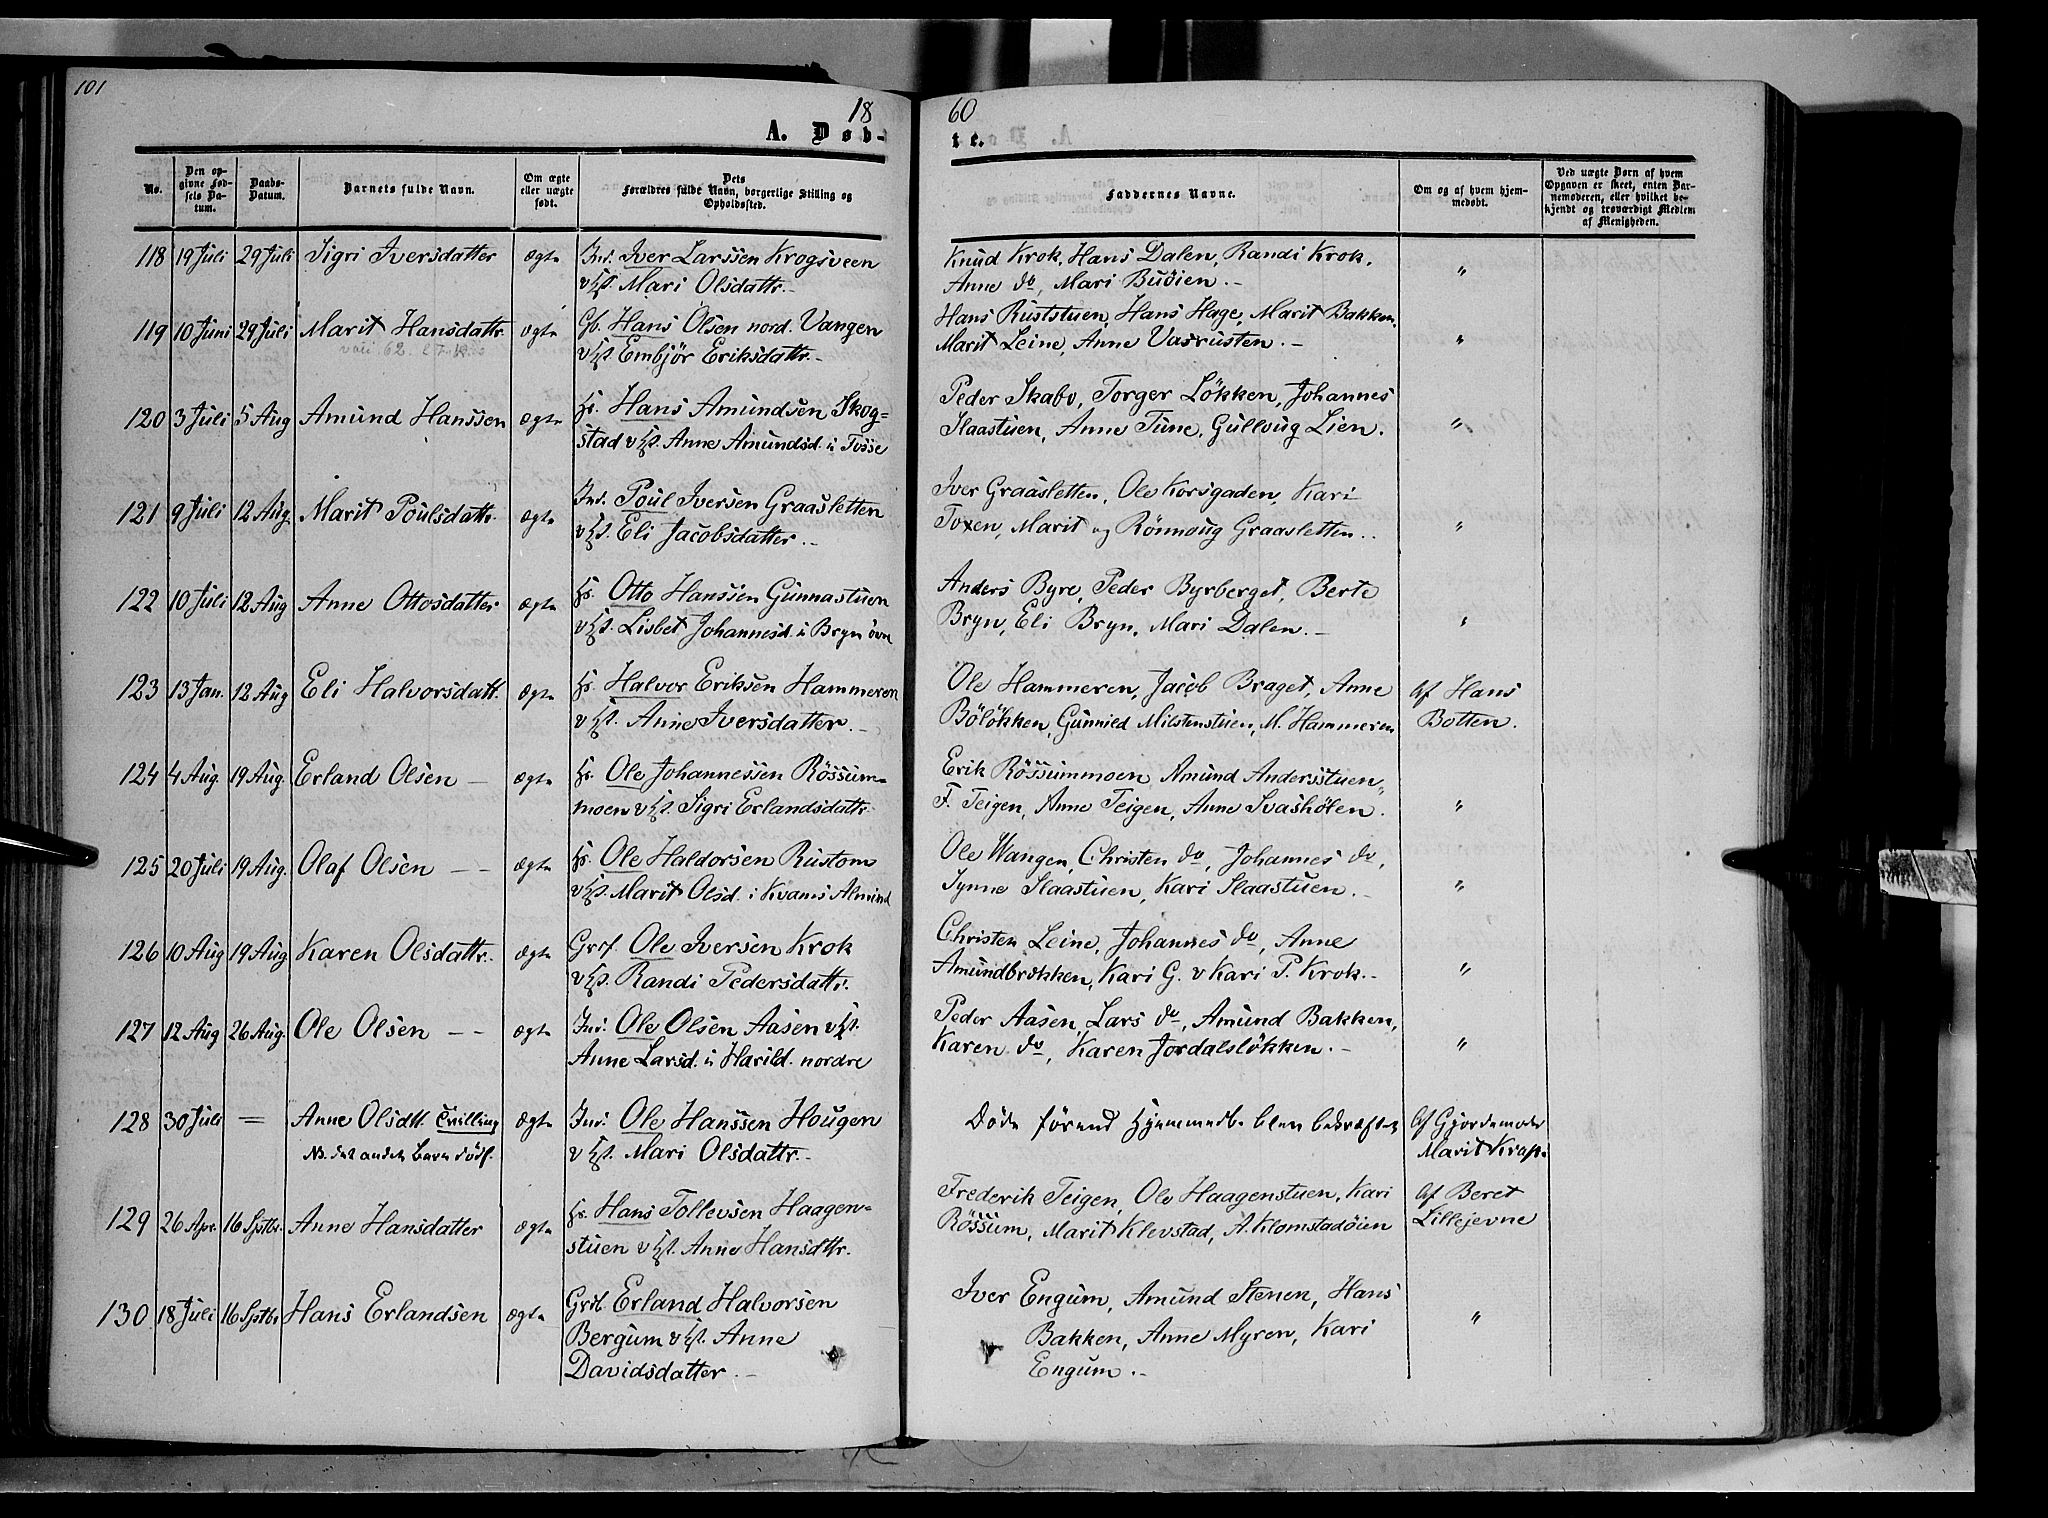 101
18 60
A. Døb-te.
No. Den opgivne Fødsels Datum. Daabs-Datum. Barnets fulde Navn. Om ægte eller uægte født. Dets Forældres fulde Navn, borgerlige Stilling og Opholdssted. Faddernes Navne. Om og af hvem hjemmedøbt. Ved uægte Børn af hvem Opgaven er skeet, enten Barnemoderen, eller hvilket bekjendt og troværdigt Medlem af Menigheden.
118 19 Juli 29 Juli Sigri Iversdatter ægte Ind. Iver Larssen Krogsveen Knud Krok, Hans Dalen, Randi Krok,
v Hst. Mari Olsdattr. Anne do, Mari Buöien. "
119 10 Juni 29 Juli Marit Hansdattr. ægte Gb. Hans Olsen nord. Vangen Hans Ruststuen, Hans Hage, Marit Bakken,
v Hst. Embjör Eriksdattr. Marit Leine, Anne Vasrusten. "
120 3 Juli 5 Aug Amund Hanssen ægte Hs. Hans Amundsen Skog- Peder Skabo, Torger Lökken, Johannes
stad v Hst. Anne Amundsd. i Tosse Slaastuen, Anne Tune, Gulloug Lien. "
121 9 Juli 12 Aug. Marit Poulsdattr. ægte Ind. Poul Iversen Graasletten Iver Graasletten, Ole Korsgaden, Kari
v Hst. Eli Jacobsdatter. Toxen, Marit og Rönnoug Graasletten. "
122 10 Juli 12 Aug Anne Ottosdatter ægte Hs. Otto Hanssen Gunnastuen Anders Byre, Peder Byrberget, Berte
v Hst. Lisbet Johannesd. i Bryn övre Bryn, Eli Bryn, Mari Dalen. "
123 13 Jan. 12 Aug Eli Halvorsdatt. ægte Hs. Halvor Eriksen Hammeren Ole Hammeren, Jacob Braget, Anne af Hans
v Hst. Anne Iversdatter. Bölökken, Gunnied Milstenstuen, M. Hammeren Botten.
124 4 Aug. 19 Aug. Erland Olsen ægte Hs. Ole Johannessen Rössum- Erik Rössummoen, Amund Andersstuen,
moen v Hst. Sigri Erlandsdattr. F. Teigen, Anne Teigen, Anne Svasholen. "
125 20 Juli 19 Aug. Olaf Olsen ægte Hs. Ole Haldorsen Rustom Ole Wangen, Christen do, Johannes do,
v Hst. Marit Olsd. i Kvams Almind Synne Slaastuen, Kari Slaastuen. "
126 10 Aug 19 Aug Karen Olsdattr. ægte Ole Iversen Krok Christen Leine, Johannes do, Anne
v Hst. Randi Pedersdattr. Amundbrækken, Kari G. v Kari P. Krok. "
127 12 Aug 26 Aug. Ole Olsen ægte Ind. Ole Olsen Aasen v Hst. Peder Aasen, Lars do, Amund Bakken,
Anne Larsd. i Harild. nordre Karen do, Karen Jordalslökken. "
128 30 Juli = Anne Olsdtt. Tvilling ægte Ind. Ole Hanssen Hougen Döde förend Hjemmedb. blev bekræftet af Gjordemoder
NB. det andet Barn dödf. v Hst. Mari Olsdattr. Marit Krok.
129 26 Apr. 16 Sptbr. Anne Hansdatter ægte Hs. Hans Tollevsen Haagen- Frederik Teigen, Ole Haagenstuen, Kari af Beret
stuen v Hst. Anne Hansdttr. Rössum, Marit Klevstad, A. Klomstadöien Lillejevne
130 18 Juli 16 Sptbr Hans Erlandsen ægte Grdb. Erland Halvorsen Iver Engum, Amund Stenen, Hans
Bergum v Hst. Anne Bakken, Anne Myren, Kari "
Davidsdatter. Engum.